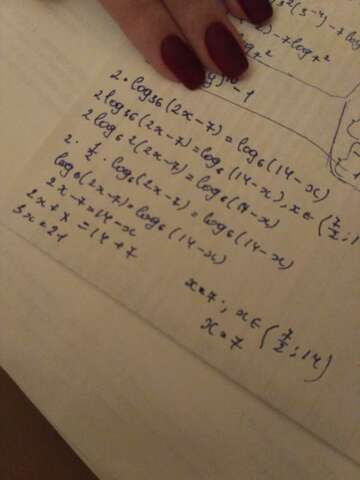 2·log₃₆(2x-7)=log₆(14-x)
2log₃₆(2x-7)=log₆(14-x), x∈(7/2;1
2log₆²(2x-7)=log₆(14-x)
2·1/2·log₆(2x-7)=log₆(14-x)
log₆(2x-7)=log₆(14-x)
2x-7=14-x
2x+x=14+7
3x=21
x=7; x∈(7/2;14)
x=7